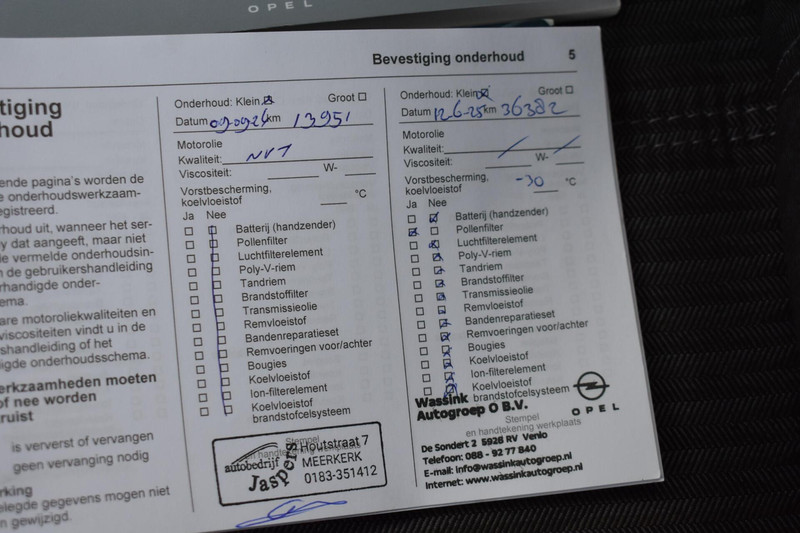 OPEL
Bevestiging onderhoud 5
tiging
houd
ende pagina's worden de
e onderhoudswerkzaam-
egistreerd.
rhoud uit, wanneer het ser-
y dat aangeeft, maar niet
le vermelde onderhoudsin-
n de gebruikershandleiding
rhandigde onder-
ema.
are motoroliekwaliteiten en
viscositeiten vindt u in de
shandleiding of het
ligde onderhoudsschema.
erkzaamheden moeten
of nee worden
ruist
is ververst of vervangen
geen vervanging nodig
rking
elegde gegevens mogen niet
en gewijzigd.
Onderhoud: Klein Groot
Datum 09-09-24 km 13951
Motorolie
Kwaliteit: NVT
Viscositeit: W-
Vorstbescherming,
koelvloeistof °C
Ja Nee
Batterij (handzender)
Pollenfilter
Luchtfilterelement
Poly-V-riem
Tandriem
Brandstoffilter
Transmissieolie
Remvloeistof
Bandenreparatieset
Remvoeringen voor/achter
Bougies
Koelvloeistof
Ion-filterelement
Koelvloeistof
brandstofcelsysteem
Stempel
en handtekening werkplaats
autobedrijf
Jaspers
Houtstraat 7
MEERKERK
0183-351412
Onderhoud: Klein Groot
Datum 12-6-25 km 36382
Motorolie
Kwaliteit:
Viscositeit: W-
Vorstbescherming,
koelvloeistof -30 °C
Ja Nee
Batterij (handzender)
Pollenfilter
Luchtfilterelement
Poly-V-riem
Tandriem
Brandstoffilter
Transmissieolie
Remvloeistof
Bandenreparatieset
Remvoeringen voor/achter
Bougies
Koelvloeistof
Ion-filterelement
Koelvloeistof
brandstofcelsysteem
Wassink
Autogroep O B.V.
OPEL
Stempel
en handtekening werkplaats
De Sondert 2 5928 RV Venlo
Telefoon: 088 - 92 77 840
E-mail: info@wassinkautogroep.nl
Internet: www.wassinkautogroep.nl